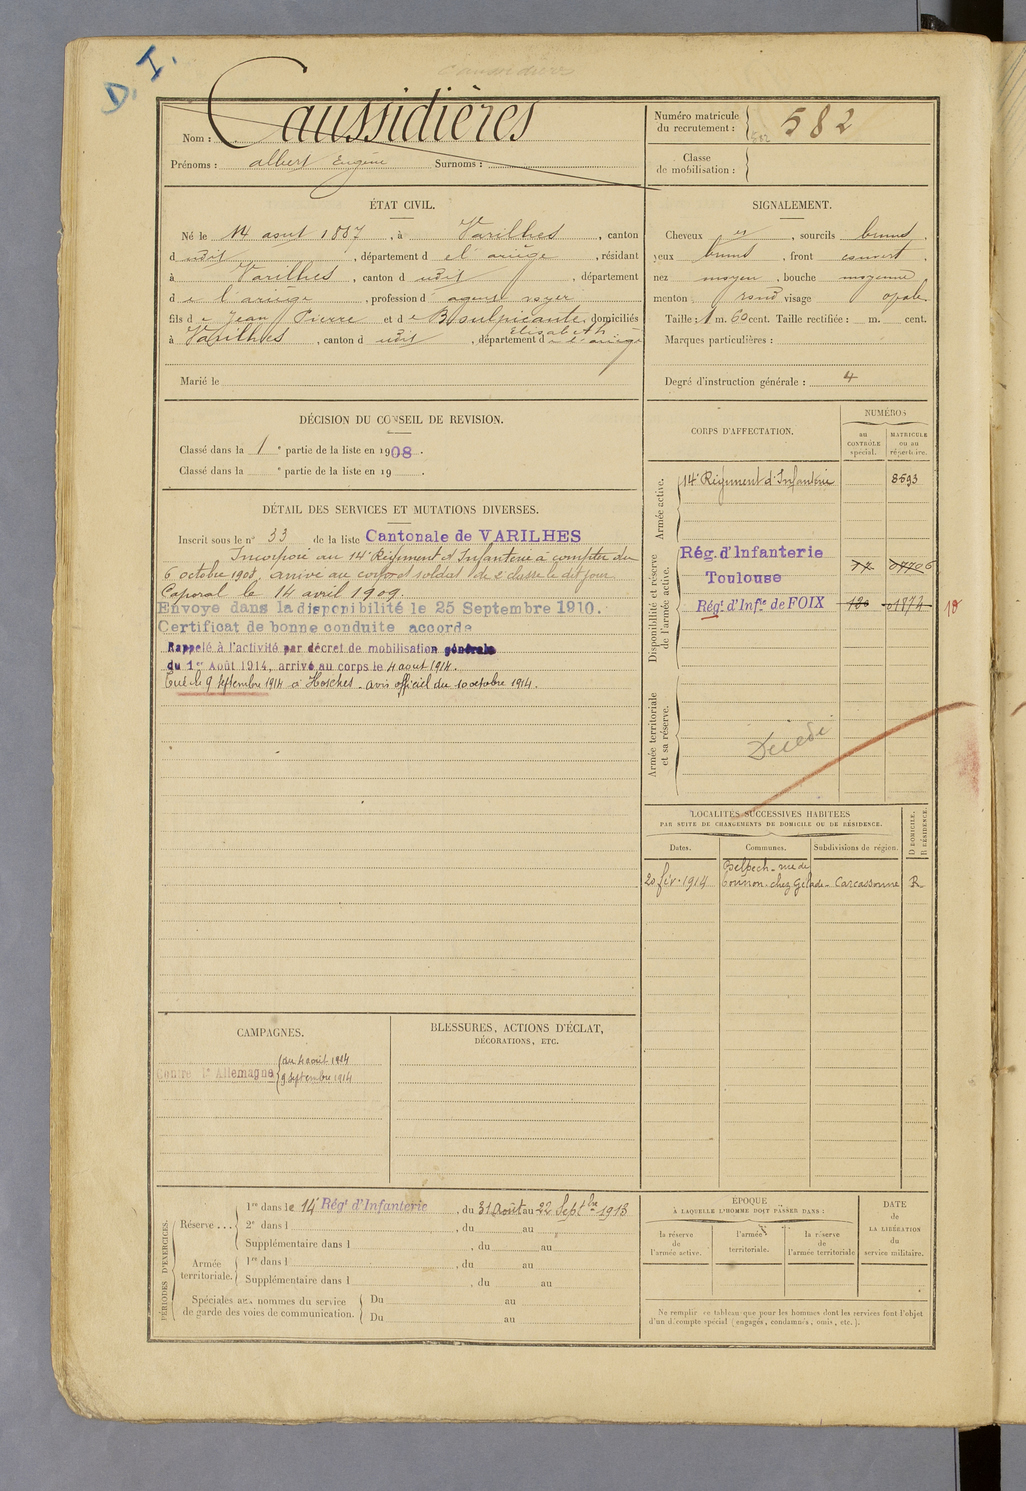 D. I.
Caussidières
Nom : Caussidières
Prénoms : albert Eugène Surnoms :
Numéro matricule
du recrutement : 582
Classe
de mobilisation :
ÉTAT CIVIL.
Né le 14 aout 1887, à Varilhes, canton
d udit, département d e l'ariège, résidant
à Varilhes, canton d udit, département
d e l'ariège, profession d agent voyer
fils d e Jean Pierre et d e domiciliés
Elisabeth
à Varilhes, canton d udit, département d e l'ariège
Marié le
SIGNALEMENT.
Cheveux et, sourcils bruns,
yeux bruns, front couvert,
nez moyen, bouche moyenne,
menton rond visage
Taille : 1 m. 60 cent. Taille rectifiée : m. cent.
Marques particulières :
Degré d'instruction générale : 4
DÉCISION DU CONSEIL DE REVISION.
Classé dans la 1 e partie de la liste en 1908.
Classé dans la e partie de la liste en 19 .
DÉTAIL DES SERVICES ET MUTATIONS DIVERSES.
Inscrit sous le n° 33 de la liste Cantonale de VARILHES
Incorporé au 14e Régiment d'Infanterie à compter du
6 octobre 1908, arrivé au corps et soldat de 2e classe le dit jour
Caporal le 14 avril 1909.
Envoyé dans la disponibilité le 25 Septembre 1910.
Certificat de bonne conduite accordé
Rappelé à l'activité par décret de mobilisation générale
du 1er Août 1914, arrivé au corps le 4 aout 1914.
Tué le 9 septembre 1914 à Hosches. avis officiel du 10 octobre 1914.
CORPS D'AFFECTATION.
NUMÉROS
au
CONTRÔLE
spécial.
MATRICULE
ou au
répertoire.
Armée active.
14e Régiment d'Infanterie 8593
Disponibilité et réserve
de l'armée active.
Rég. d'Infanterie
Toulouse
Régt d'Infie de FOIX
Armée territoriale
et sa réserve.
Décédé
LOCALITÉS SUCCESSIVES HABITÉES
PAR SUITE DE CHANGEMENTS DE DOMICILE OU DE RÉSIDENCE.
D DOMICILE.
R RÉSIDENCE.
Dates. Communes. Subdivisions de région.
Belpech - rue de
20 fév. 1914 chez Gélade - Carcassonne R
CAMPAGNES.
Contre l'Allemagne
du 4 août 1914
9 septembre 1914
BLESSURES, ACTIONS D'ÉCLAT,
DÉCORATIONS, ETC.
PÉRIODES D'EXERCICES.
Réserve ...
1re dans le 14e Régt d'Infanterie, du 31 Août au 22 Septbre 1913
2e dans l , du au
Supplémentaire dans l , du au
Armée
territoriale.
1re dans l , du au
Supplémentaire dans l , du au
Spéciales aux hommes du service
de garde des voies de communication.
Du au
Du au
ÉPOQUE
À LAQUELLE L'HOMME DOIT PASSER DANS :
la réserve
de
l'armée active.
l'armée
territoriale.
la réserve
de
l'armée territoriale
DATE
de
LA LIBÉRATION
du
service militaire.
Ne remplir ce tableau que pour les hommes dont les services font l'objet
d'un décompte spécial (engagés, condamnés, omis, etc.).